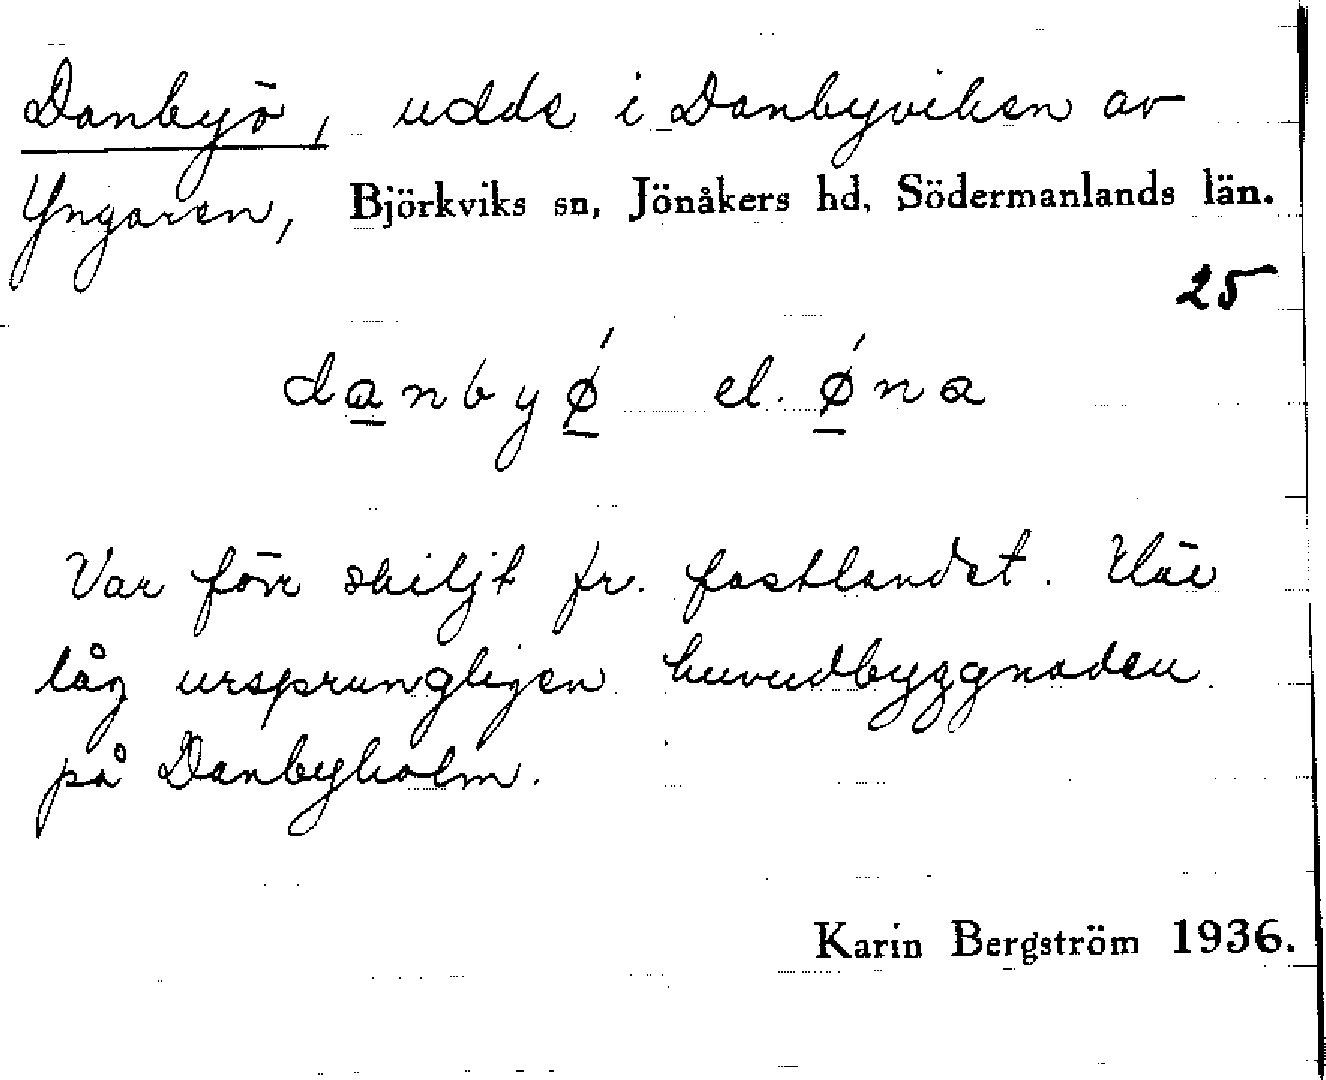 Danbyö, udde i Danbyviken av
Yngaren, Björkviks sn, Jönåkers hd, Södermanlands län.
25
danbyǿ el. ǿna
Var förr skiljt fr. fastlandet. Här
låg ursprungligen huvudbyggnaden
på Danbyholm.
Karin Bergström 1936.